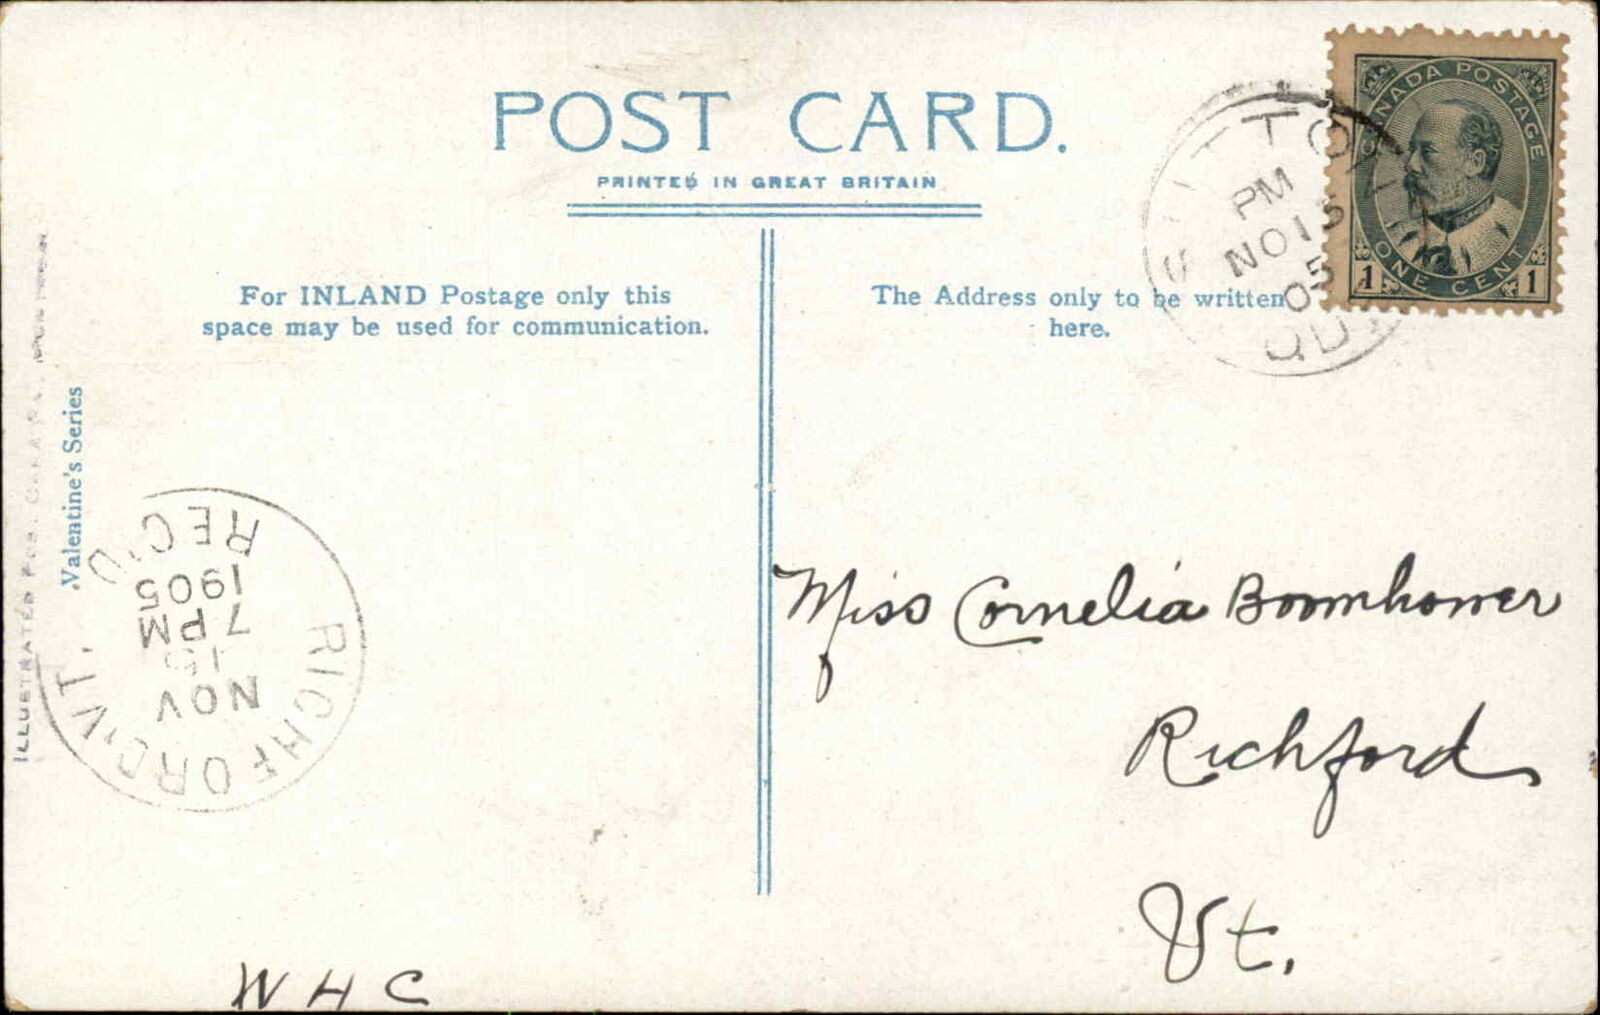 POST CARD.
PRINTED IN GREAT BRITAIN
For INLAND Postage only this
space may be used for communication.
The Address only to be written
here.
CANADA POSTAGE
ONE CENT
1 1
SUTTON
PM
NO 15
05
QUE
Valentine's Series
ILLUSTRATED POST CARD
RICHFORD, VT.
NOV
15
7 PM
1905
REC'D
Miss Cornelia Boomhower
Richford
Vt.
W H C